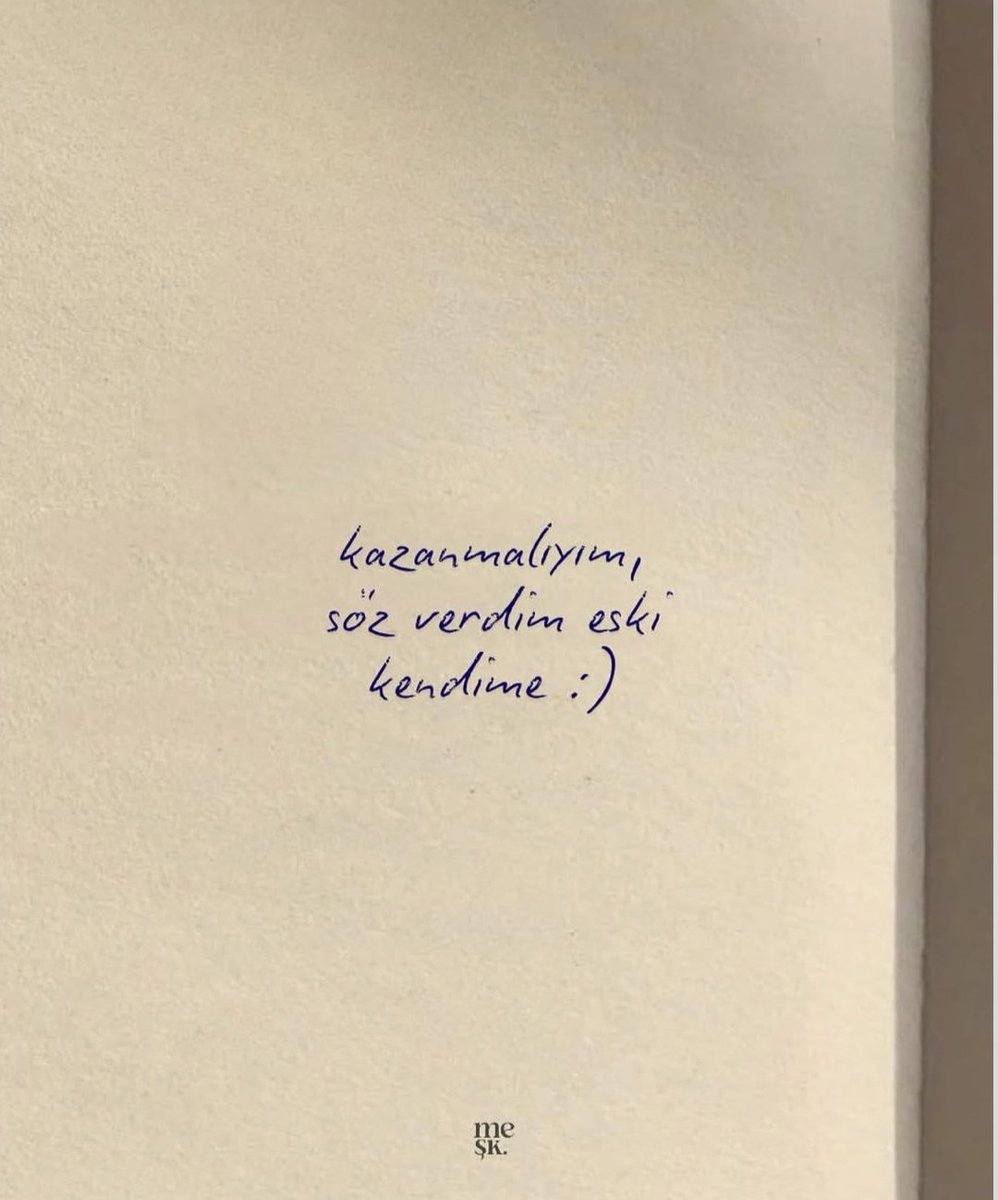 kazanmalıyım,
söz verdim eski
kendime :)
me
şk.